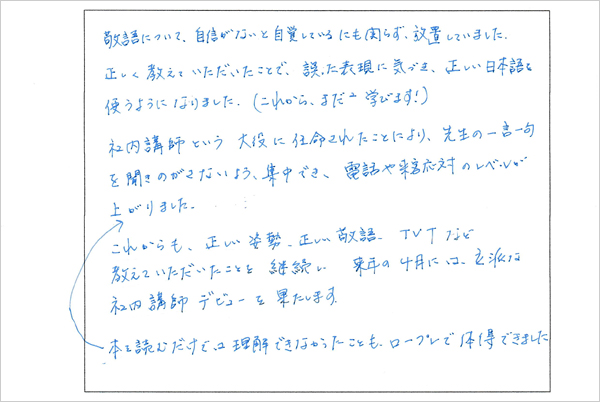 敬語について、自信がないと自覚しているにも関らず、放置していました。
正しく教えていただいたことで、誤った表現に気づき、正しい日本語を
使うようになりました。(これから、まだまだ学びます!)
社内講師という大役に任命されたことにより、先生の一言一句
を聞きのがさないよう、集中でき、電話や来客応対のレベルが
上がりました。
これからも、正しい姿勢、正しい敬語、TVTなど
教えていただいたことを継続し、来年の4月には、立派な
社内講師デビューを果たします。
本を読むだけでは理解できなかったことも、ロープレで体得できました